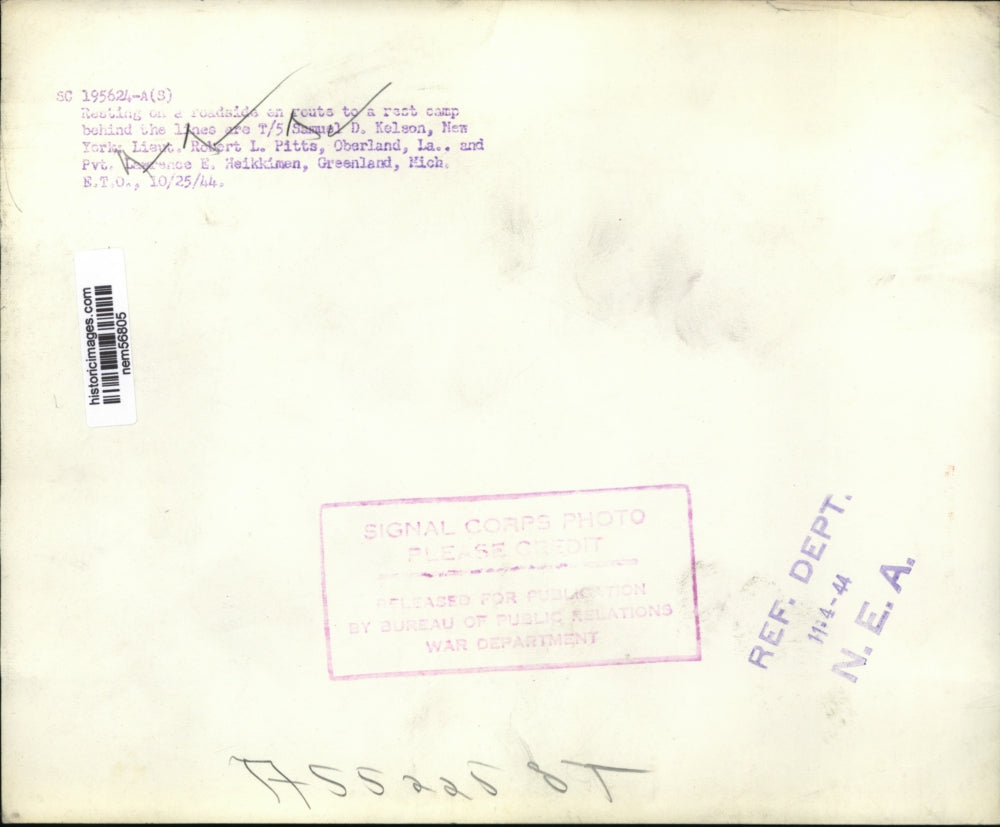 SC 195624-A(S)
Resting on a roadside en route to a rest camp
behind the lines are T/5 Samuel D. Kelson, New
York; Lieut. Robert L. Pitts, Oberland, La.. and
Pvt. Lawrence E. Heikkinen, Greenland, Mich.
E.T.O., 10/25/44.
historicimages.com
nem56805
SIGNAL CORPS PHOTO
PLEASE CREDIT
RELEASED FOR PUBLICATION
BY BUREAU OF PUBLIC RELATIONS
WAR DEPARTMENT
REF. DEPT.
11-4-44
N. E. A.